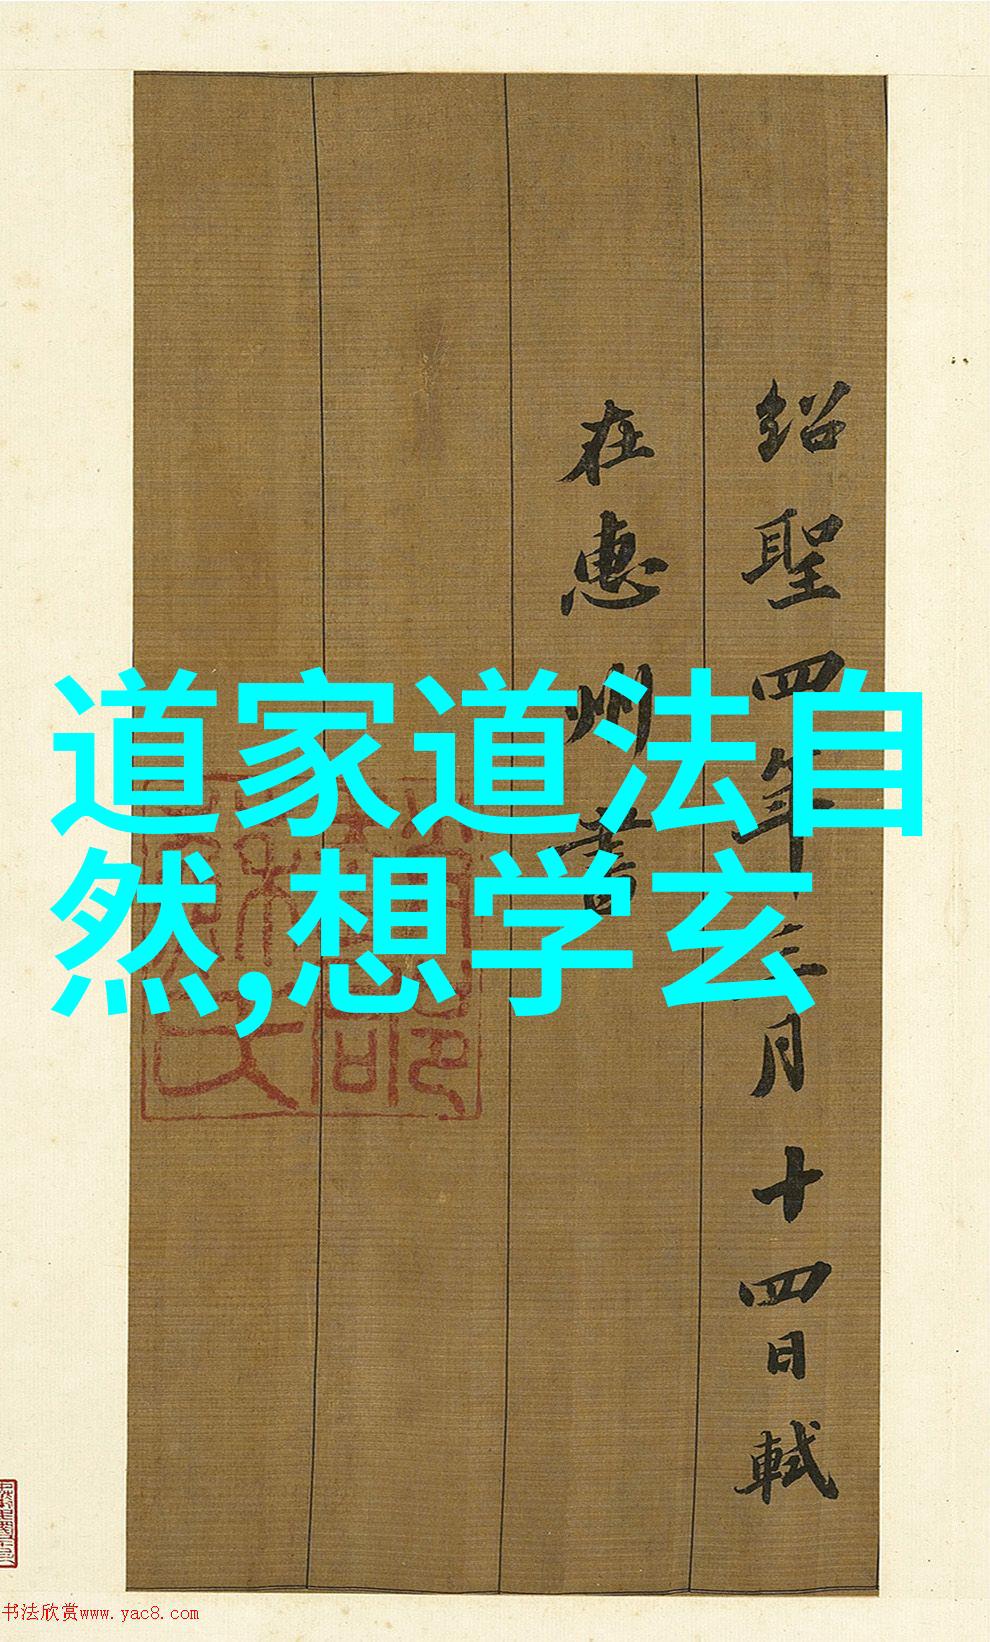 紹聖四年三月十四日軾
在惠州書
道家道法自
然,想学玄
书法欣赏www.yac8.com